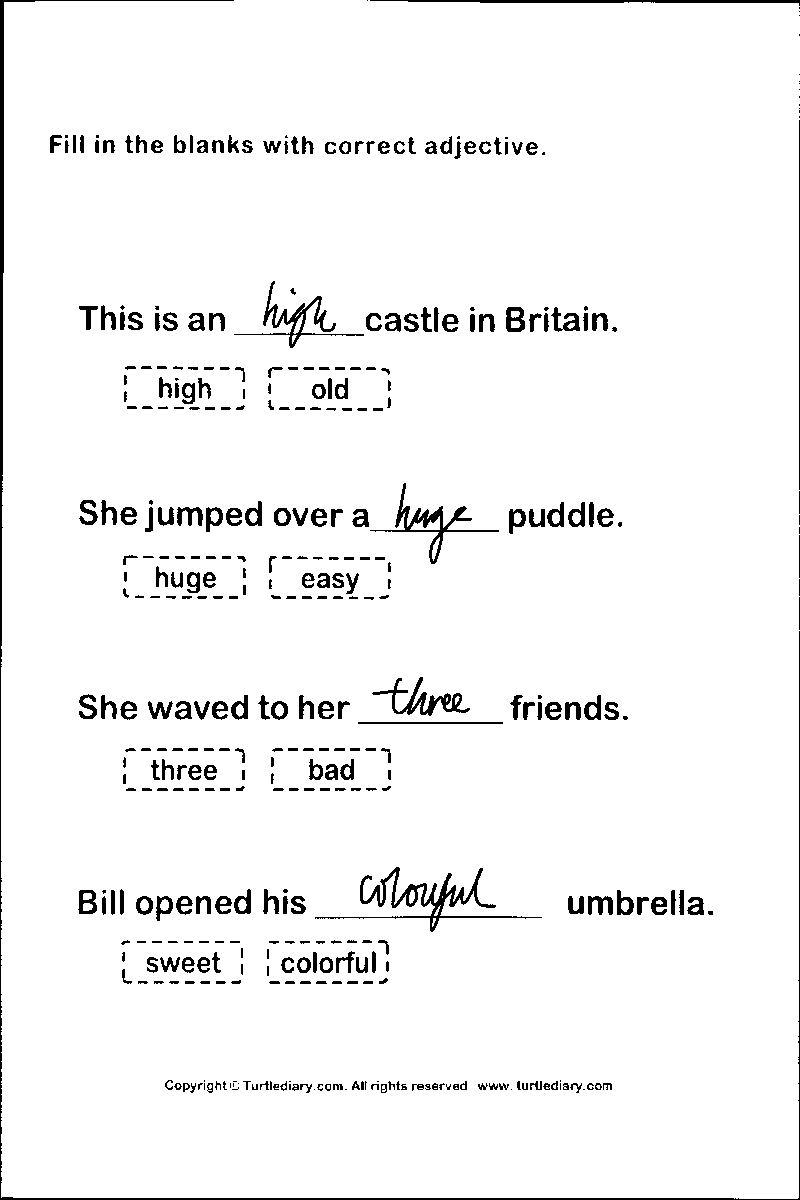 Fill in the blanks with correct adjective.
This is an high castle in Britain.
high old
She jumped over a huge puddle.
huge easy
She waved to her three friends.
three bad
Bill opened his colouful umbrella.
sweet colorful
Copyright © Turtlediary.com. All rights reserved www. turtlediary.com